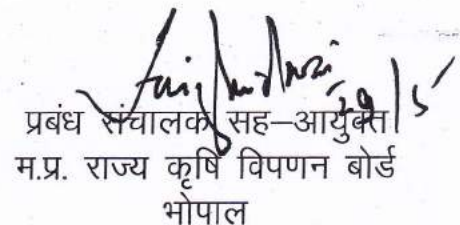 29/5
प्रबंध संचालक सह–आयुक्त
म.प्र. राज्य कृषि विपणन बोर्ड
भोपाल